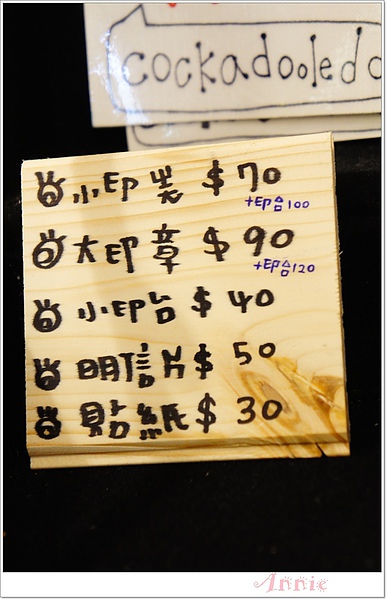 cockadooledo
小印章 $70
+印台100
大印章 $90
+印台120
小印台 $40
明信片 $50
貼紙 $30
Annie